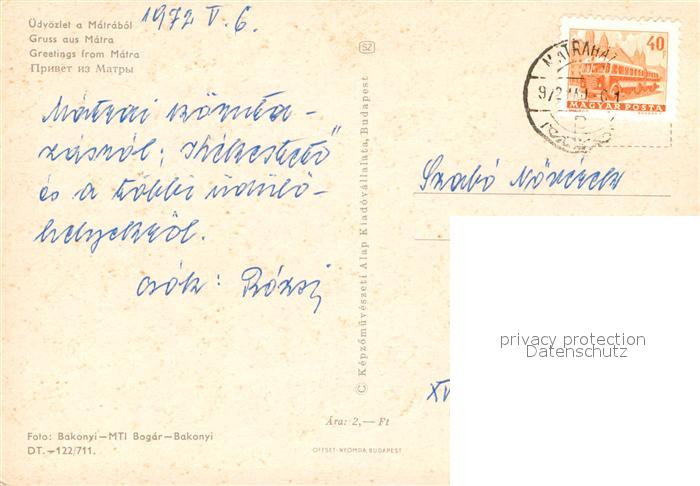 Üdvözlet a Mátrából
Gruss aus Mátra
Greetings from Mátra
Привет из Матры
1972 V. 6.
SZ
40 f
MAGYAR POSTA
MÁTRAHÁZ
972 MÁJ -6
Mátrai körüta-
zásról; "Kékestető"
és a többi üdülő-
helyekről.
csók: Rózsi
Szabó Nővérek
© Képzőművészeti Alap Kiadóvállalata, Budapest
privacy protection
Datenschutz
XV
Ára: 2,— Ft
Foto: Bakonyi—MTI Bogár—Bakonyi
DT.—122/711.
OFFSET-NYOMDA, BUDAPEST